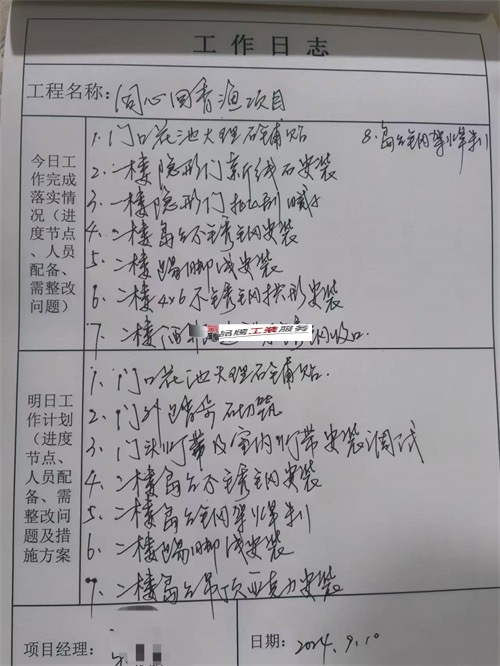 工作日志
工程名称: 同心回青渔项目
今日工作完成落实情况（进度节点、人员配备、需整改问题）
1. 门口花池大理石铺贴
8. 岛台钢架焊制
2. 一楼隐形门新线石安装
3. 一楼隐形门
4. 二楼岛台不锈钢安装
5. 二楼踢脚线安装
6. 二楼4×6不锈钢拱形安装
7. 二楼 收口.
品牌工装服务
明日工作计划（进度节点、人员配备、需整改问题及措施方案
1. 门口花池大理石铺贴.
2. 门外 青石切筑
3. 门头灯带及室内灯带安装调试
4. 二楼岛台不锈钢安装
5. 二楼岛台钢架焊制
6. 二楼踢脚线安装
7. 二楼岛台吊顶亚克力安装
项目经理:
日期: 2024.9.10